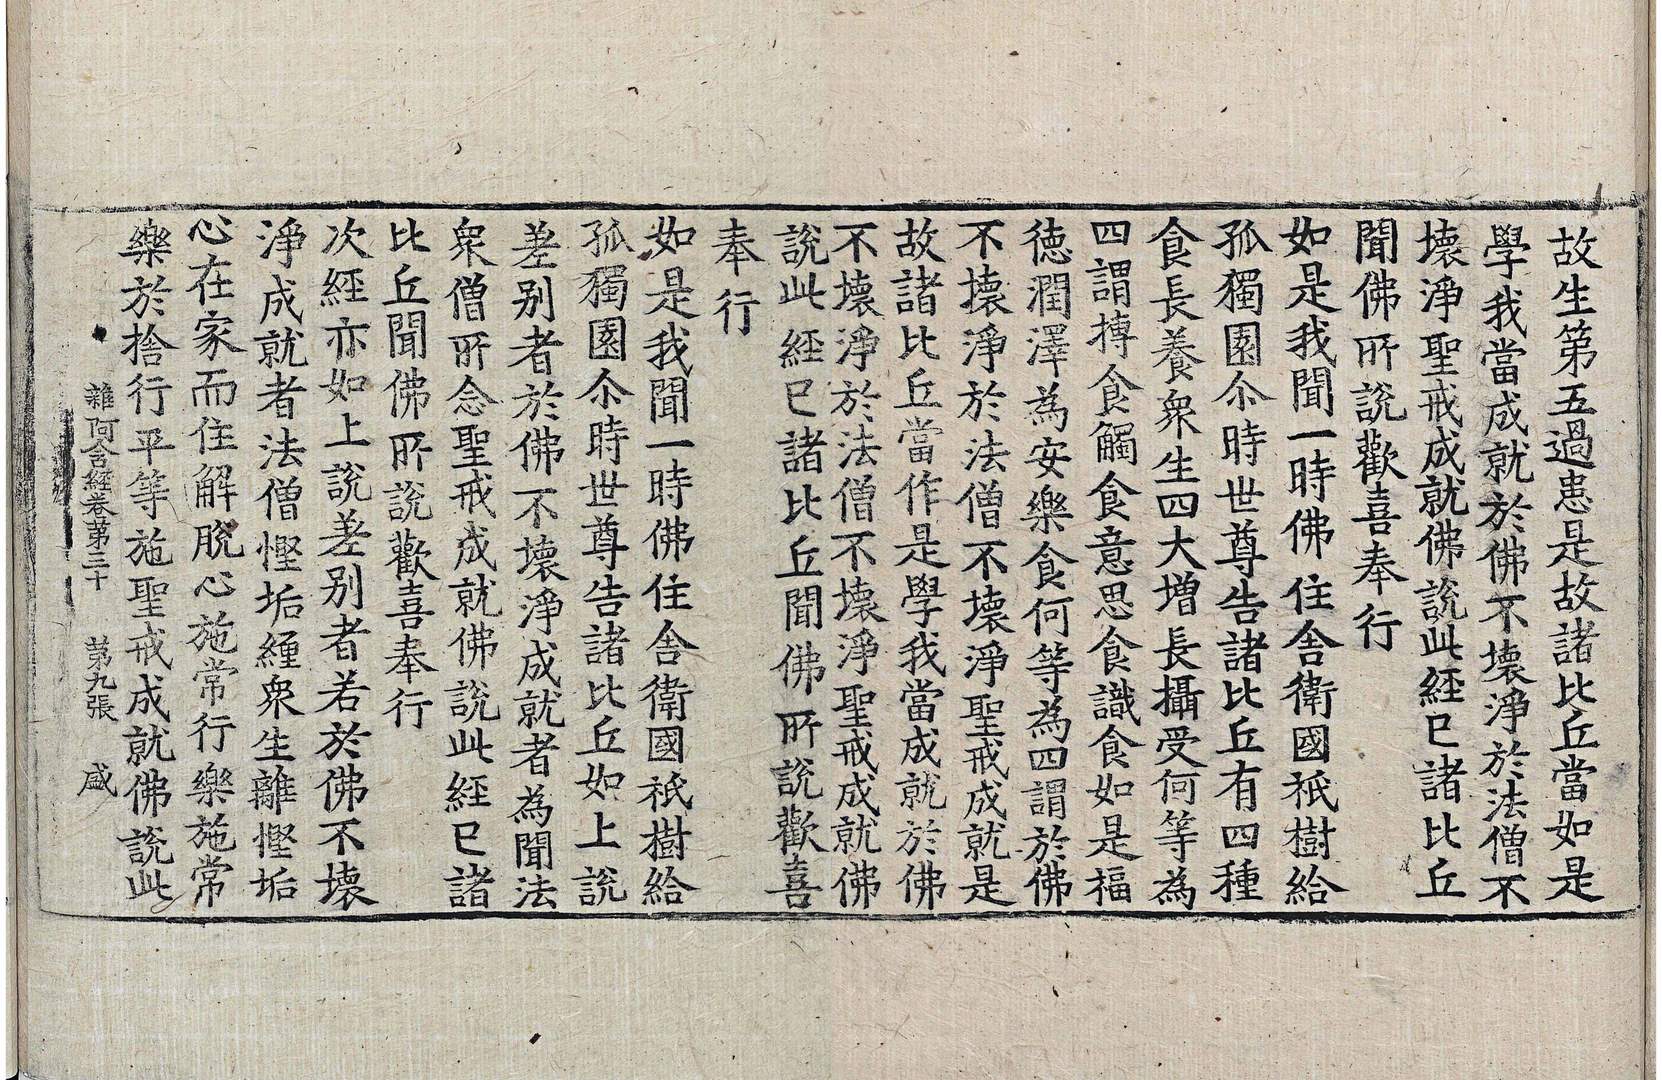 故生第五過患是故諸比丘當如是
學我當成就於佛不壞淨於法僧不
壞淨聖戒成就佛說此經已諸比丘
聞佛所說歡喜奉行
如是我聞一時佛住舍衛國祇樹給
孤獨園尒時世尊告諸比丘有四種
食長養衆生四大增長攝受何等為
四謂摶食觸食意思食識食如是福
德潤澤為安樂食何等為四謂於佛
不壞淨於法僧不壞淨聖戒成就是
故諸比丘當作是學我當成就於佛
不壞淨於法僧不壞淨聖戒成就佛
說此經已諸比丘聞佛所說歡喜
奉行
如是我聞一時佛住舍衛國祇樹給
孤獨園尒時世尊告諸比丘如上說
差別者於佛不壞淨成就者為聞法
衆僧所念聖戒成就佛說此經已諸
比丘聞佛所說歡喜奉行
次經亦如上說差別者若於佛不壞
淨成就者法僧慳垢纏衆生離慳垢
心在家而住解脫心施常行樂施常
樂於捨行平等施聖戒成就佛說此
雜阿含經卷第三十 第九張 盛